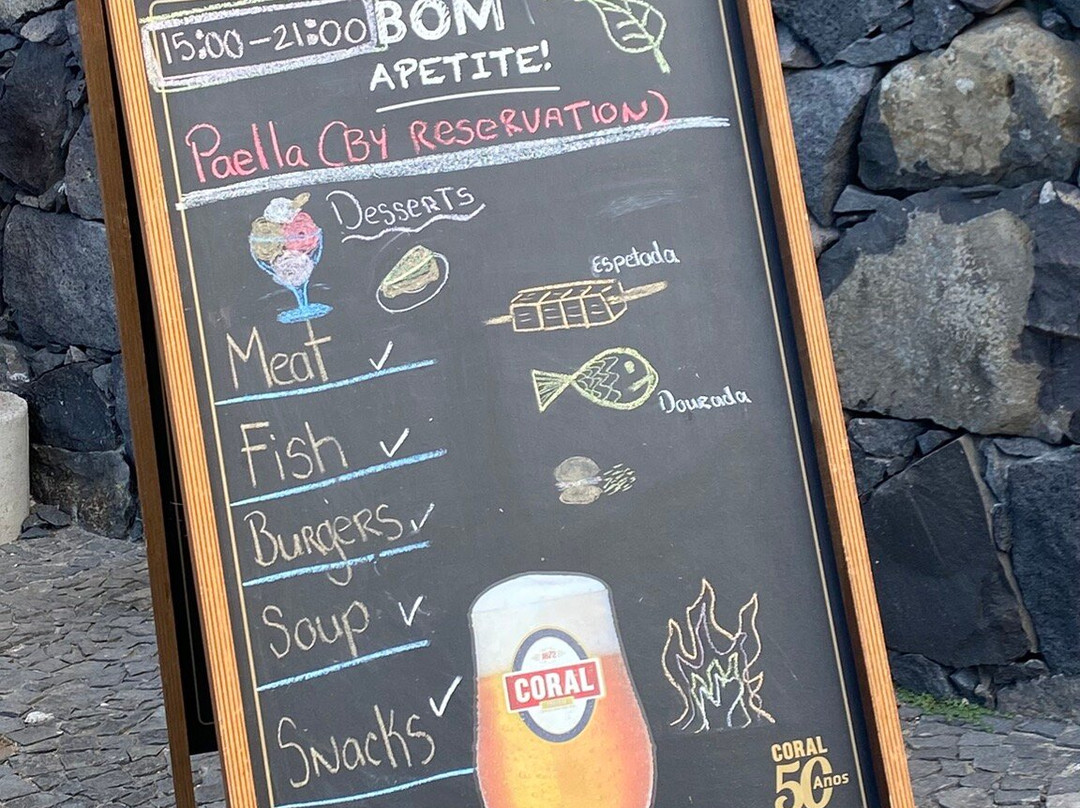 15:00-21:00
BOM
APETITE!
Paella (BY RESERVATION)
Desserts
Espetada
Meat ✓
Dourada
Fish ✓
Burgers ✓
Soup ✓
Snacks ✓
CORAL
CORAL
50 Anos